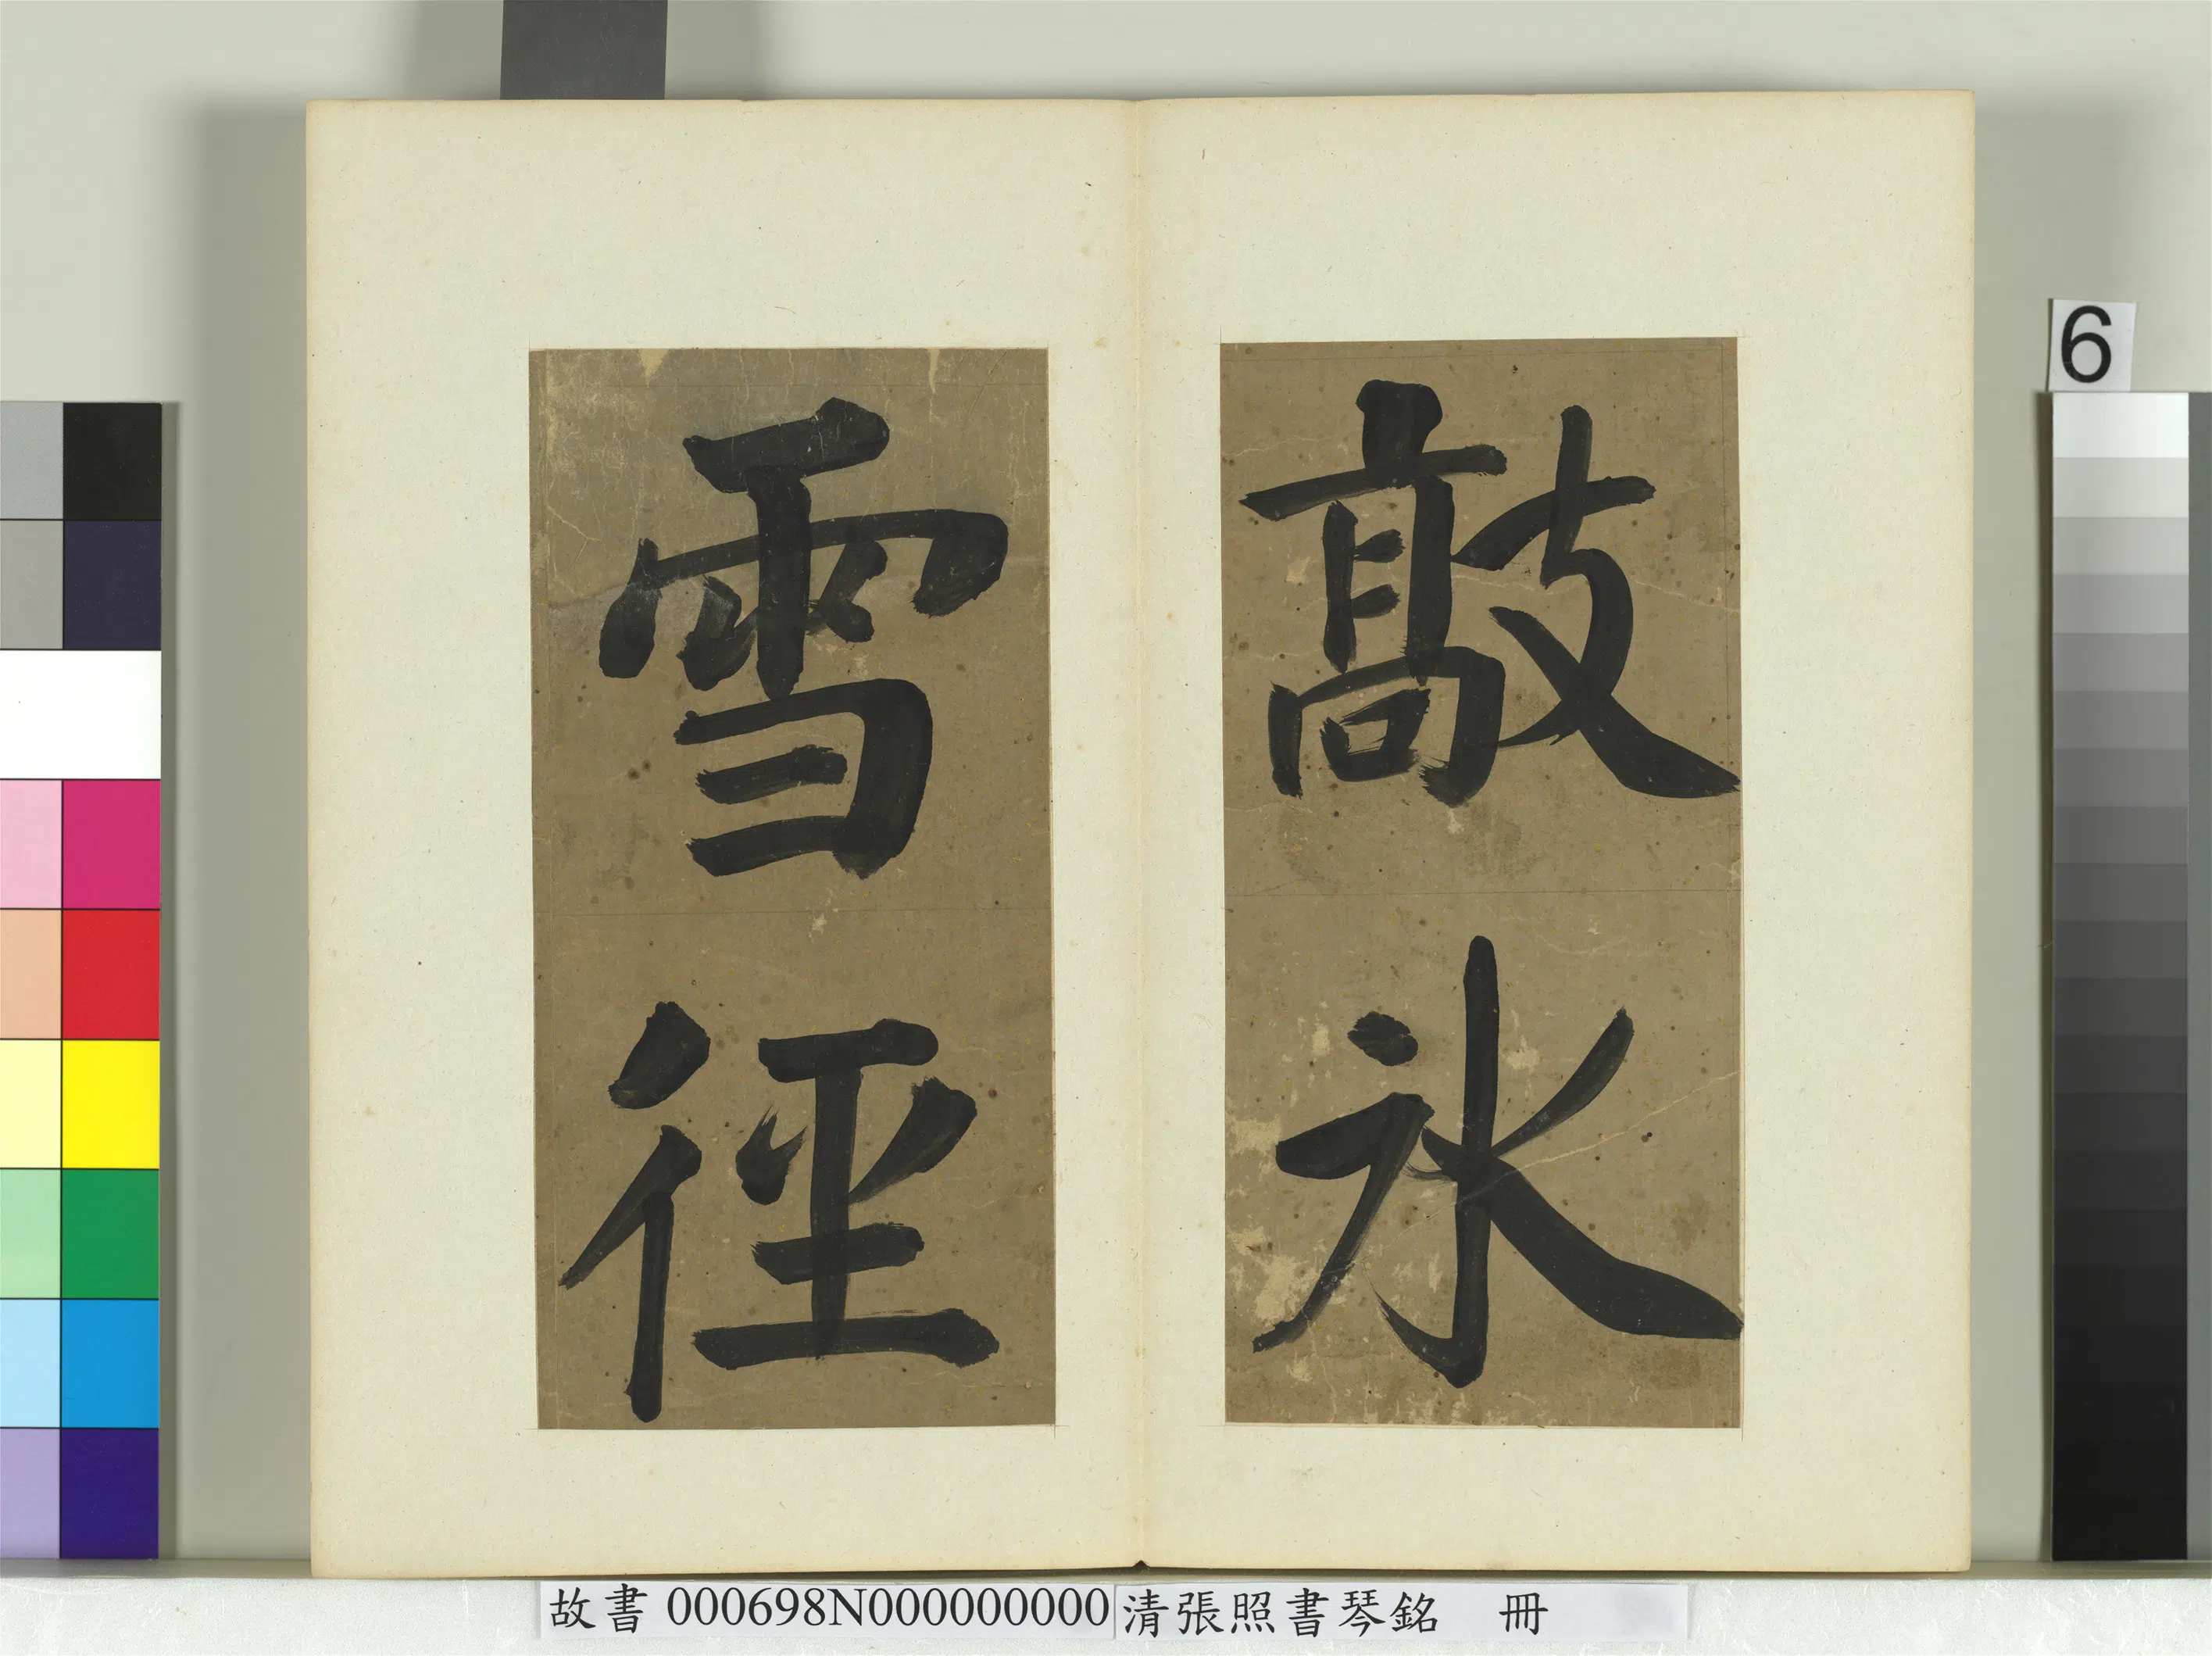 敲冰
雪徑
6
故書 000698N000000000 清張照書琴銘 冊